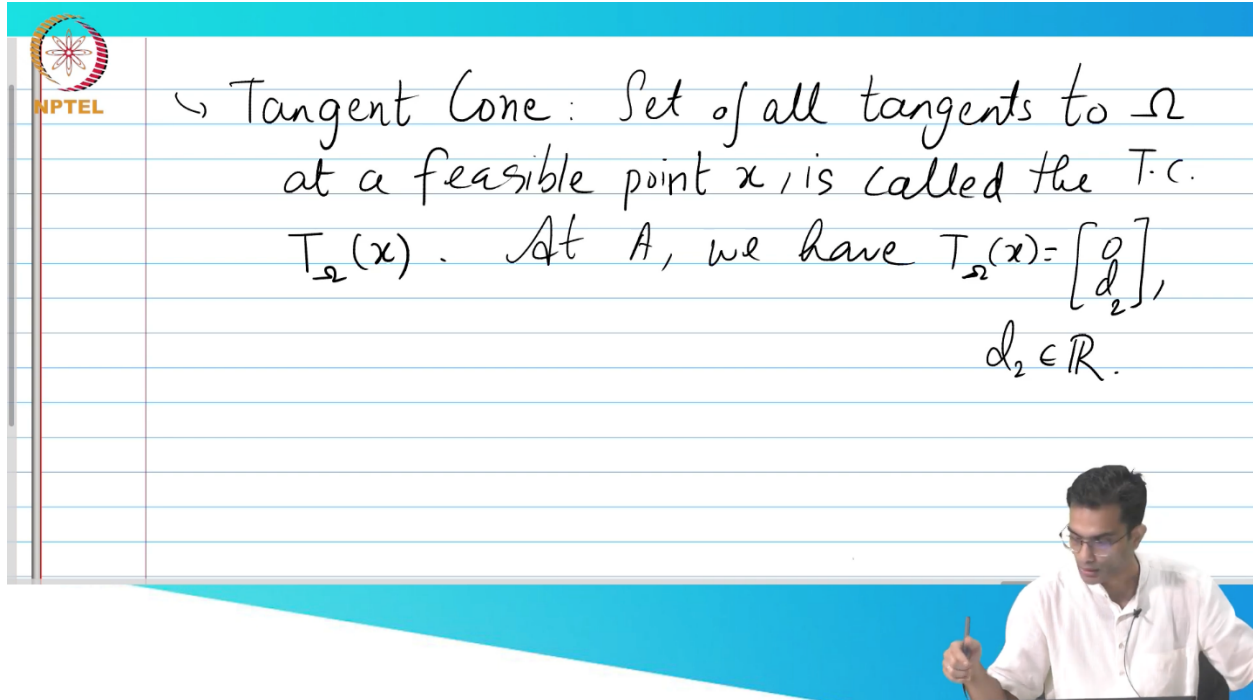 NPTEL
↳ Tangent Cone: Set of all tangents to Ω
at a feasible point x, is called the T.C.
T_Ω(x). At A, we have T_Ω(x) = [0 d₂],
d₂ ∈ ℝ.